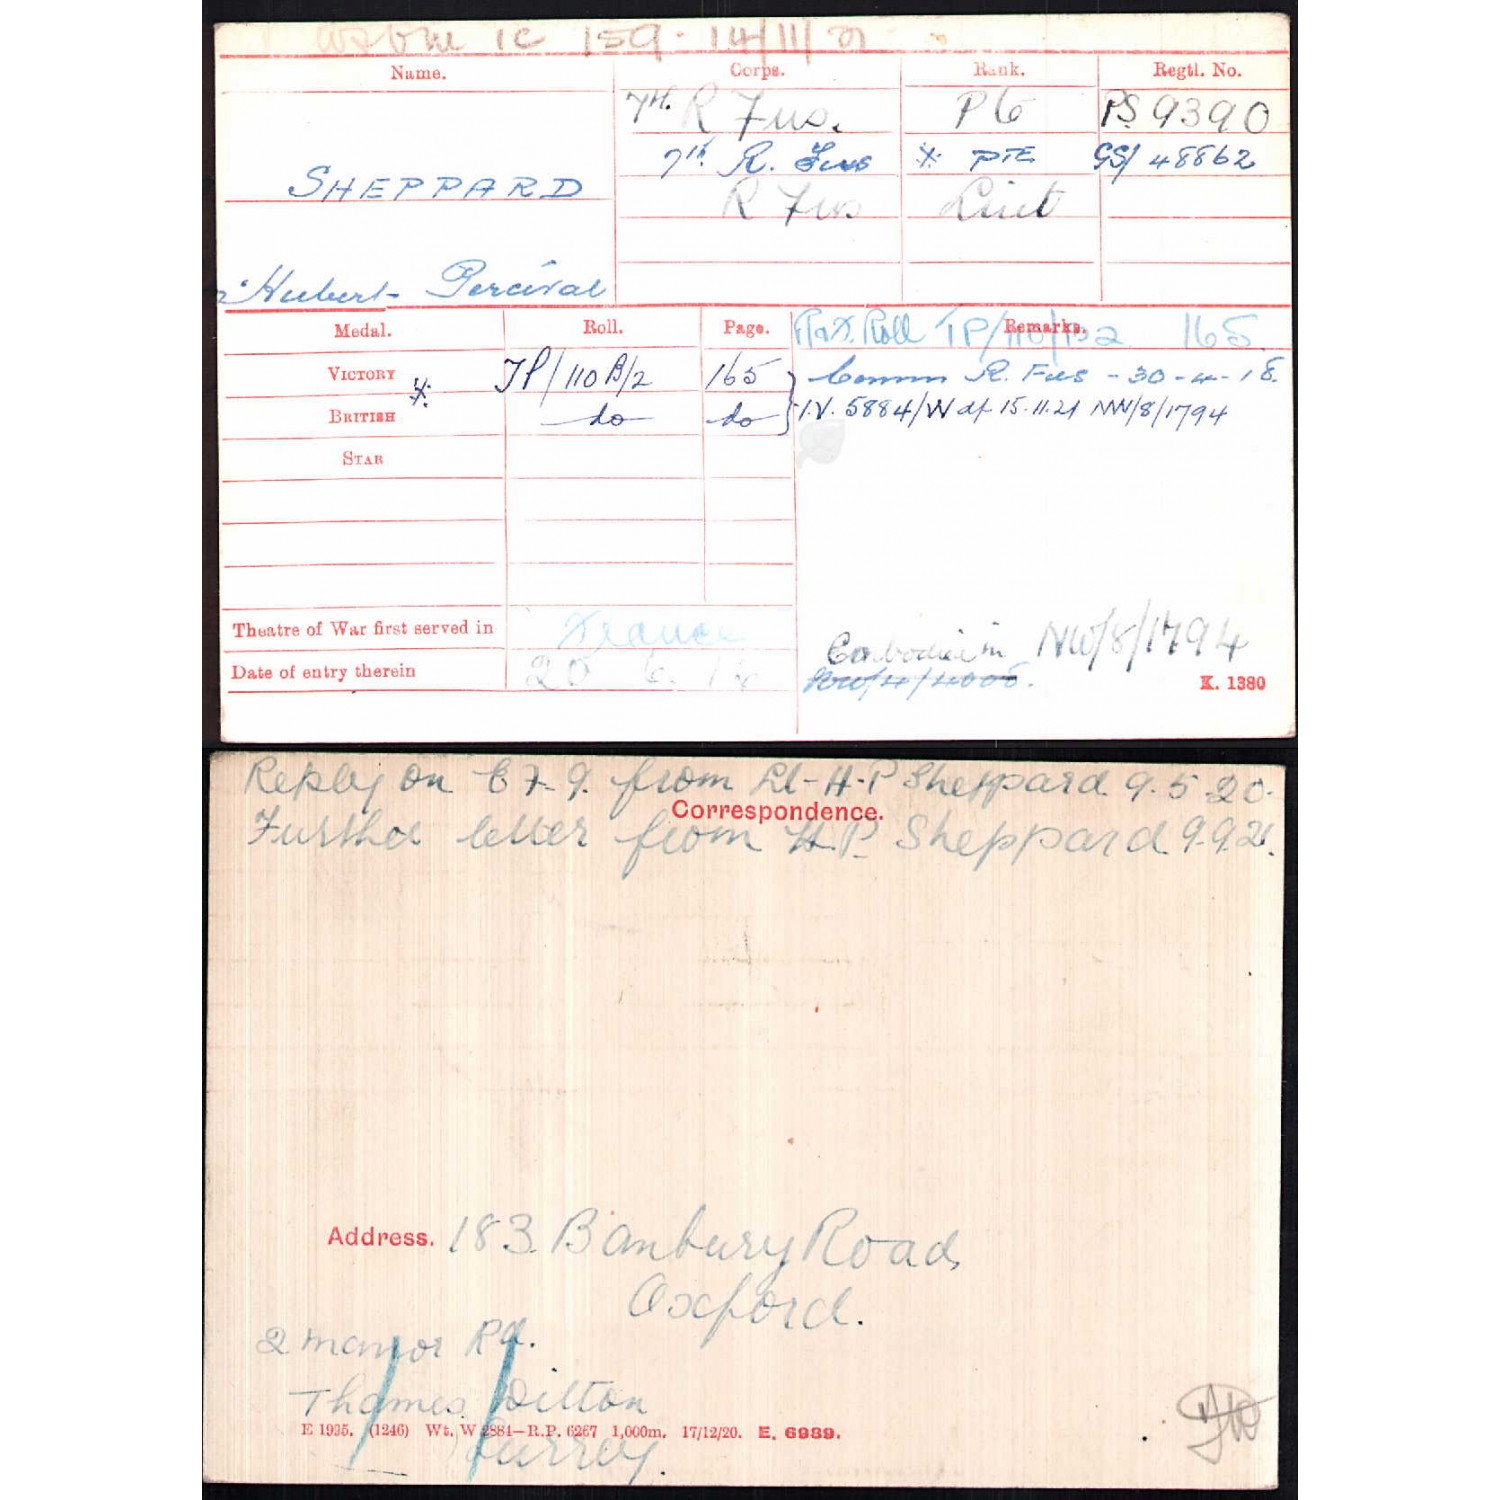 1c 159. 14/11/21
Name. Corps. Rank. Regtl. No.
7th. R Fus. Pte PS 9390
7th. R. Fus * PTE GS/ 48862
SHEPPARD
R Fus Lieut
Hubert Percival
Medal. Roll. Page. Remarks.
Roll TP/110/B2 165.
VICTORY * TP/110B/2 165 Comm R. Fus - 30-4-18.
BRITISH do do I.V. 5884/W df 15.11.21 NW/8/1794
STAR
Theatre of War first served in France
NW/8/1794
Date of entry therein 20 6. 16
NW/4/4006.
K. 1380
Reply on E F. 9. from Lt- H.P Sheppard 9.5.20.
Correspondence.
Further letter from H.P. Sheppard 9.9.21.
Address. 183 Banbury Road
Oxford.
2 Manor Rd.
Thames Ditton
E 1995. (1246) Wt. W 2884—R.P. 6267 1,000m. 17/12/20. E. 6989.
Surrey.